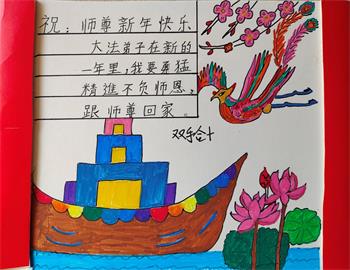 祝：师尊新年快乐
大法弟子在新的
一年里，我要勇猛
精進不负师恩，
跟师尊回家。
双手合十